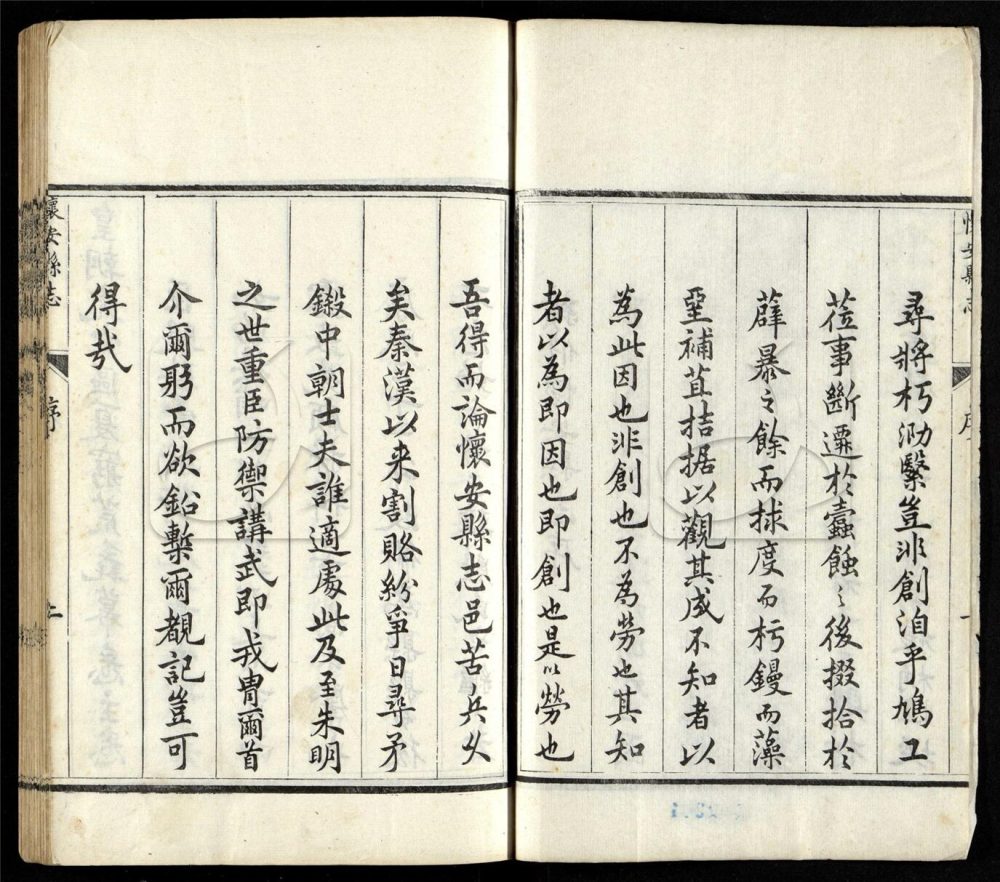 尋將朽泐繄豈非創洎乎鳩工
蒞事斷遷於蠹蝕之後掇拾於
薜暴之餘而捄度而杇鏝而藻
堊補苴拮据以觀其成不知者以
為此因也非創也不為勞也其知
者以為即因也即創也是以勞也
吾得而論懷安縣志邑苦兵乆
矣秦漢以来割賂紛爭日尋矛
鎩中朝士夫誰適處此及至朱明
之世重臣防禦講武即戎胄爾首
介爾躬而欲鉛槧爾覩記豈可
得㢤
懷安縣志
序